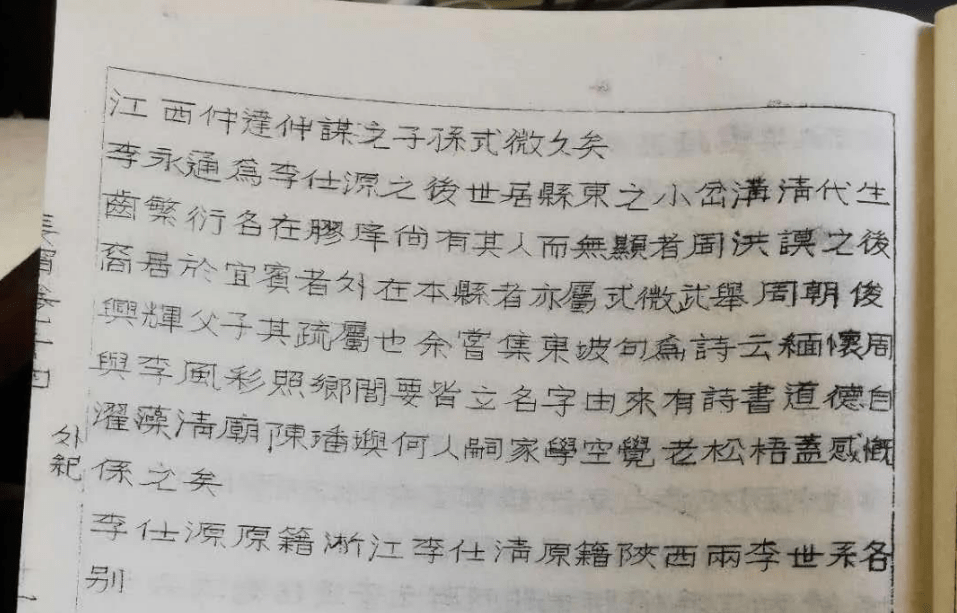 江西仲達仲謀之子孫式微久矣
李永通爲李仕源之後世居縣東之小岔溝清代生
齒繁衍各在膠庠尚有其人而無顯者周洪謨之後
裔居於宜賓者外在本縣者亦屬式微武舉周朝俊
興輝父子其疏屬也余嘗集東坡句爲詩云緬懷周
與李風彩照鄉閭要皆立名字由來有詩書道德自
濯藻清廟陳璠璵何人嗣家學空覺老松梧蓋感慨
係之矣
李仕源原籍淅江李仕清原籍陝西兩李世系各
别
外紀